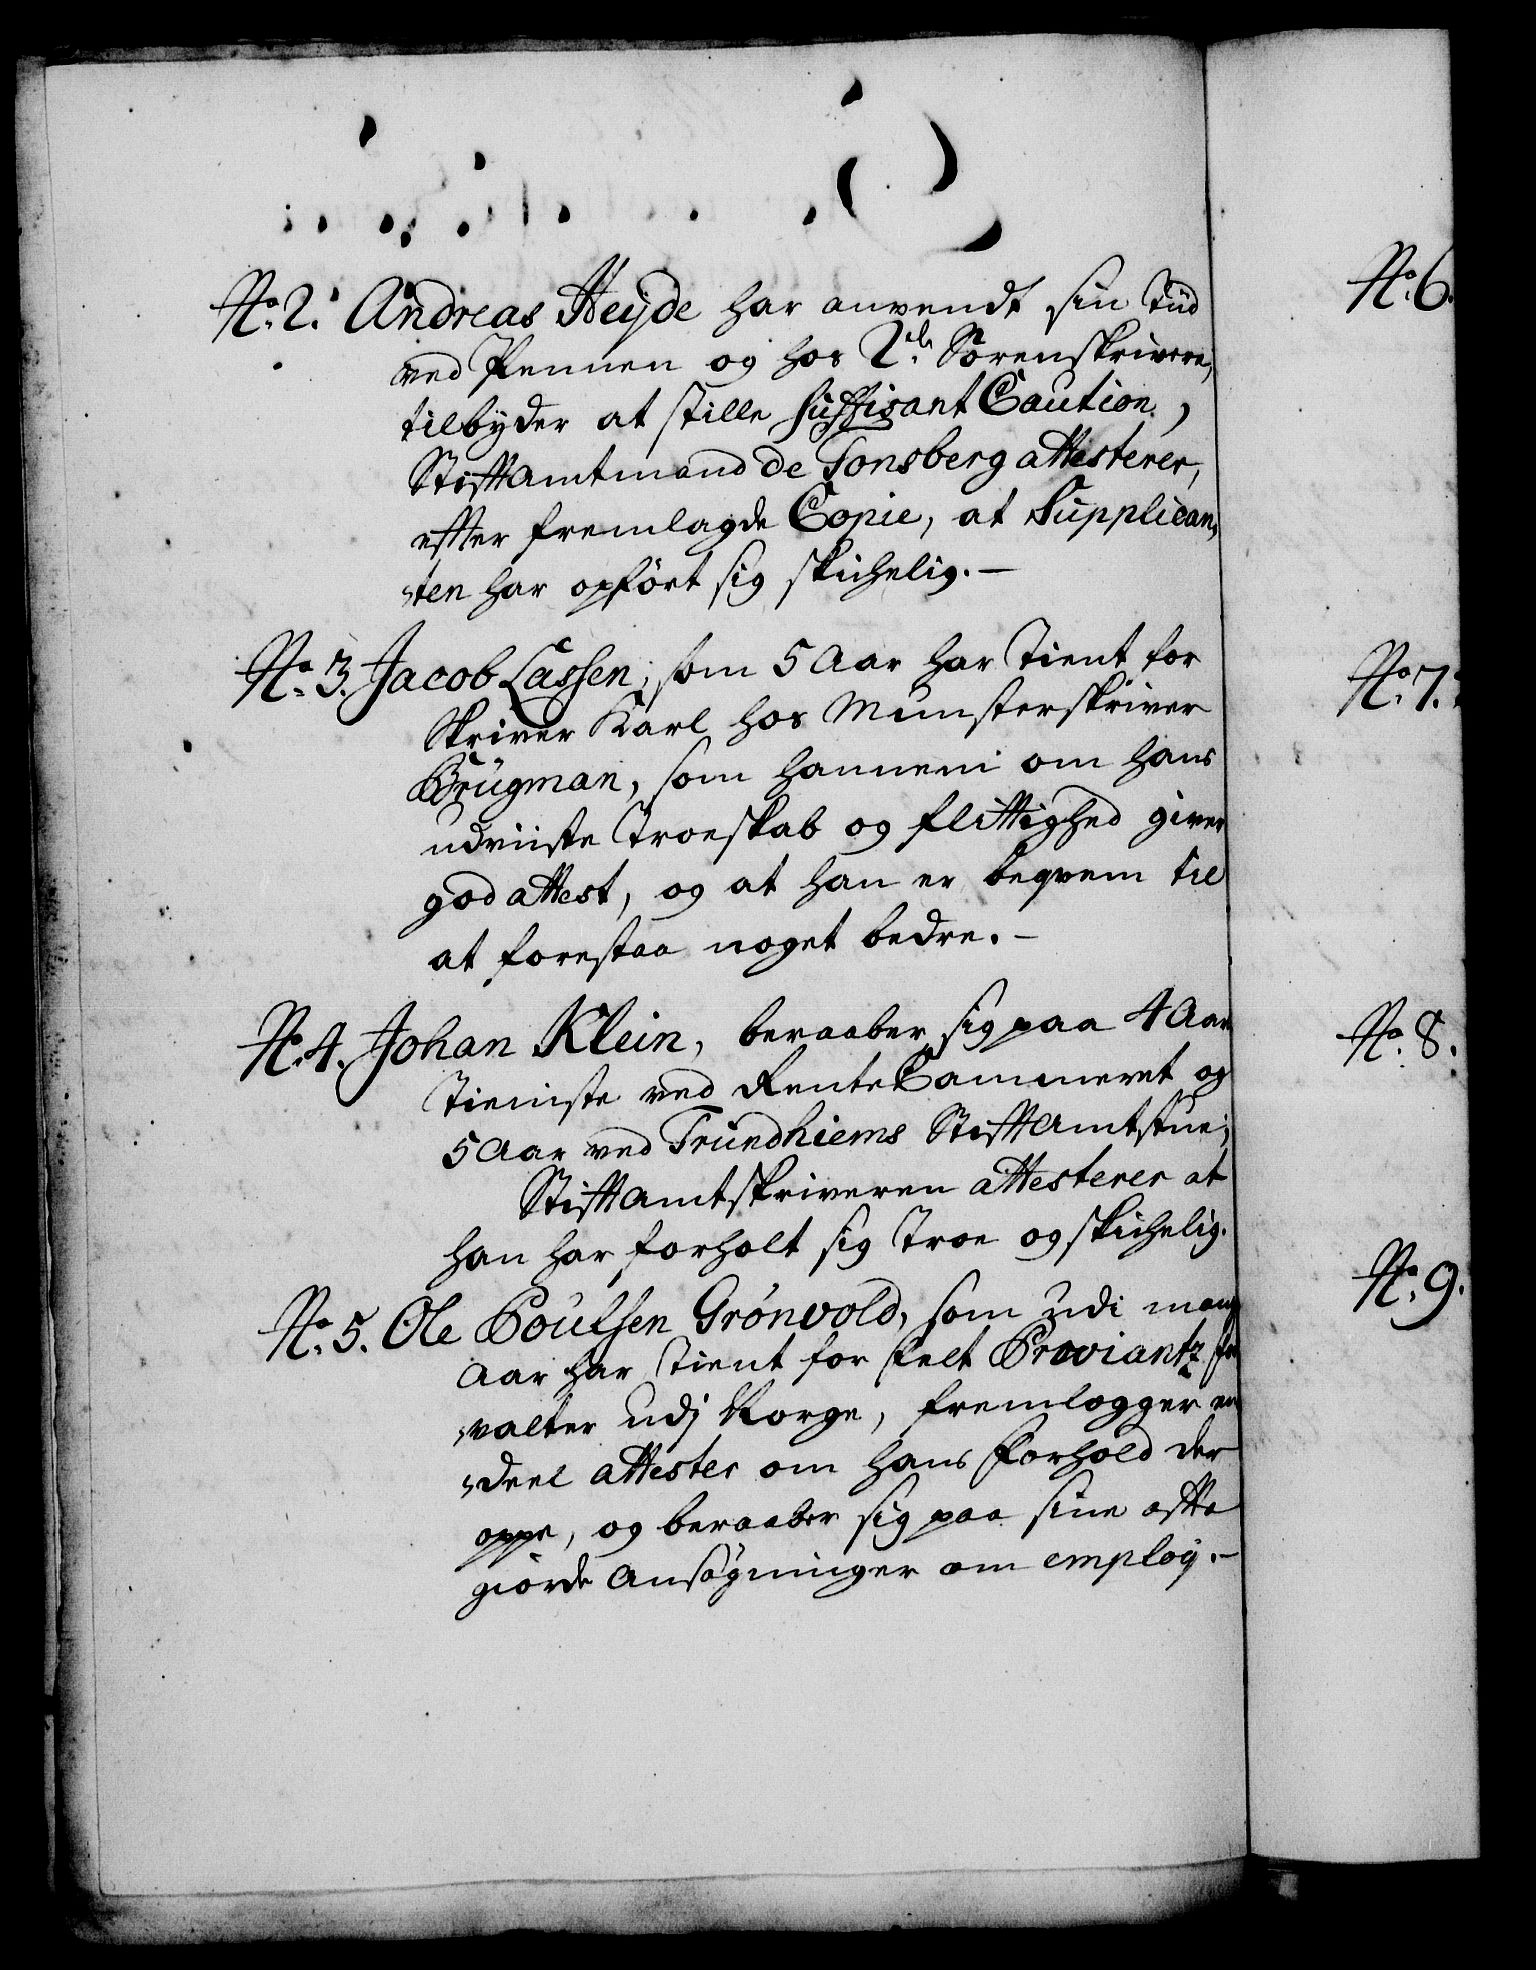 No. 2. Andreas Heyde har anvendt sin Tiid
ved Pennen og hos 2de Sorenskrivere,
tilbyder at stille suffisant Caution,
Stiftamtmand de Tonsberg attesterer,
efter fremlagde Copie, at Supplican-
ten har opført sig skichelig. —
No. 3. Jacob Lassen, som 5 Aar har Tient for
Skriver Karl hos Munsterskriver
Brügman, som hannem om hans
udviiste Troeskab og flittighed giver
god attest, og at han er beqvem til
at forestaa noget bedre. —
No. 4. Johan Klein, beraaber sig paa 4 Aars
Tieniste ved RenteCammeret og
5 Aar ved Trundhiems Stiftamtstue;
Stiftamtskriveren attesterer at
han har forholt sig Troe og skichelig.
No. 5. Ole Poulsen Grönvold, som udi mange
Aar har Tient for Felt Proviantz for
valter udj Norge, fremlegger en
deel attester om hans forhold der
oppe, og beraaber sig paa sine offte
giorde Ansøgninger om employ. —
No. 6.
No. 7.
No. 8.
No. 9.